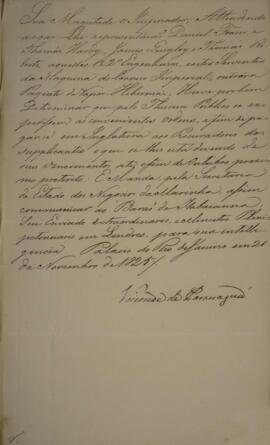 Sua Magestade o Imperador, Attendendo
ao que Lhe representárão Daniel
e Thomaz Ro-
Engenheiro, e estes Serventes
da Maquina do Imperial, outrora
Paquete de Vapor Hibernia, Houve por bem
Determinar que pelo Thesouro Publico se ex-
pessão as convenientes ordens, a fim de pa-
gar-se em Inglaterra aos Procuradores dos
Supplicantes o que se lhes está devendo de
seus vencimentos até o fim de Outubro proxi-
mo preterito. E Manda, pela Secretaria
de Estado dos Negocios da Marinha, assim
communicar ao Barão de Itabaianna,
Seu Enviado Extraordinario, e Ministro Pleni-
potenciario em Londres, para sua intelli-
gencia. Palacio do Rio de Janeiro em 21
de Novembro de 1825.
Visconde de Paranaguá